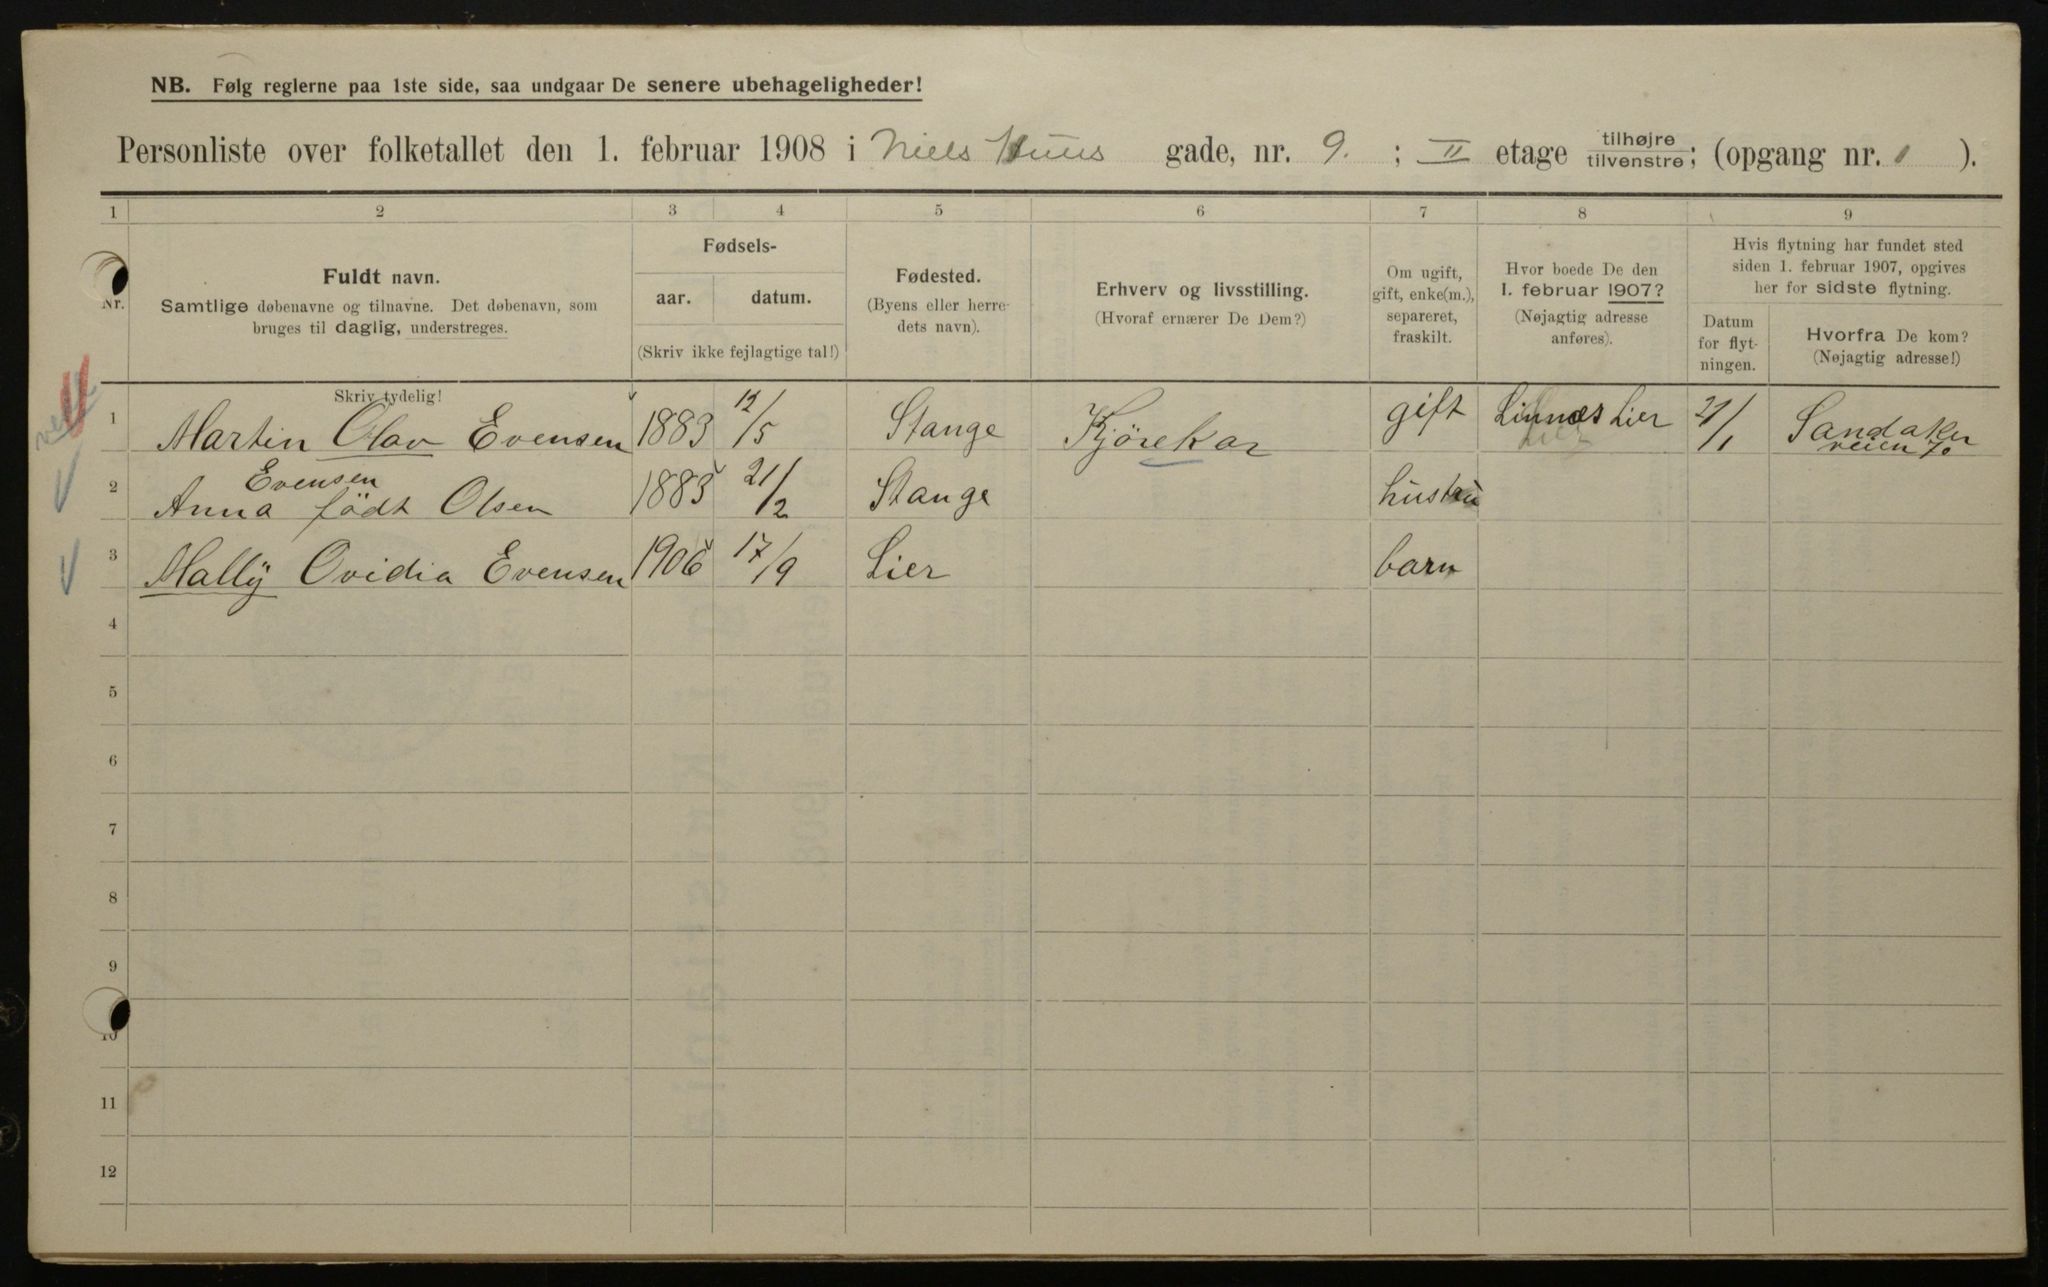 NB. Følg reglerne paa 1ste side, saa undgaar De senere ubehageligheder!
Personliste over folketallet den 1. februar 1908 i Niels Huus gade, nr. 9. ; II etage tilhøjre tilvenstre; (opgang nr. 1 ).
1 2 3 4 5 6 7 8 9
Nr.
Fuldt navn.
Samtlige døbenavne og tilnavne. Det døbenavn, som
bruges til daglig, understreges.
Skriv tydelig!
Fødsels-
aar. datum.
(Skriv ikke fejlagtige tal!)
Fødested.
(Byens eller herre-
dets navn).
Erhverv og livsstilling.
(Hvoraf ernærer De Dem?)
Om ugift,
gift, enke(m.),
separeret,
fraskilt.
Hvor boede De den
1. februar 1907?
(Nøjagtig adresse
anføres).
Hvis flytning har fundet sted
siden 1. februar 1907, opgives
her for sidste flytning.
Datum
for flyt-
ningen.
Hvorfra De kom?
(Nøjagtig adresse!)
1 Martin Olav Evensen 1883 12/5 Stange Kjörekar gift Linnæs Lier 21/1 Sandaker
veien 70
Evensen
2 Anna födt Olsen 1885 21/2 Stange hustru
3 Mally Ovidia Evensen 1906 17/9 Lier barn
4
5
6
7
8
9
10
11
12